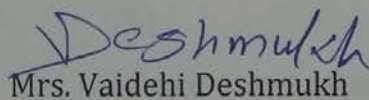 VDeshmukh
Mrs. Vaidehi Deshmukh